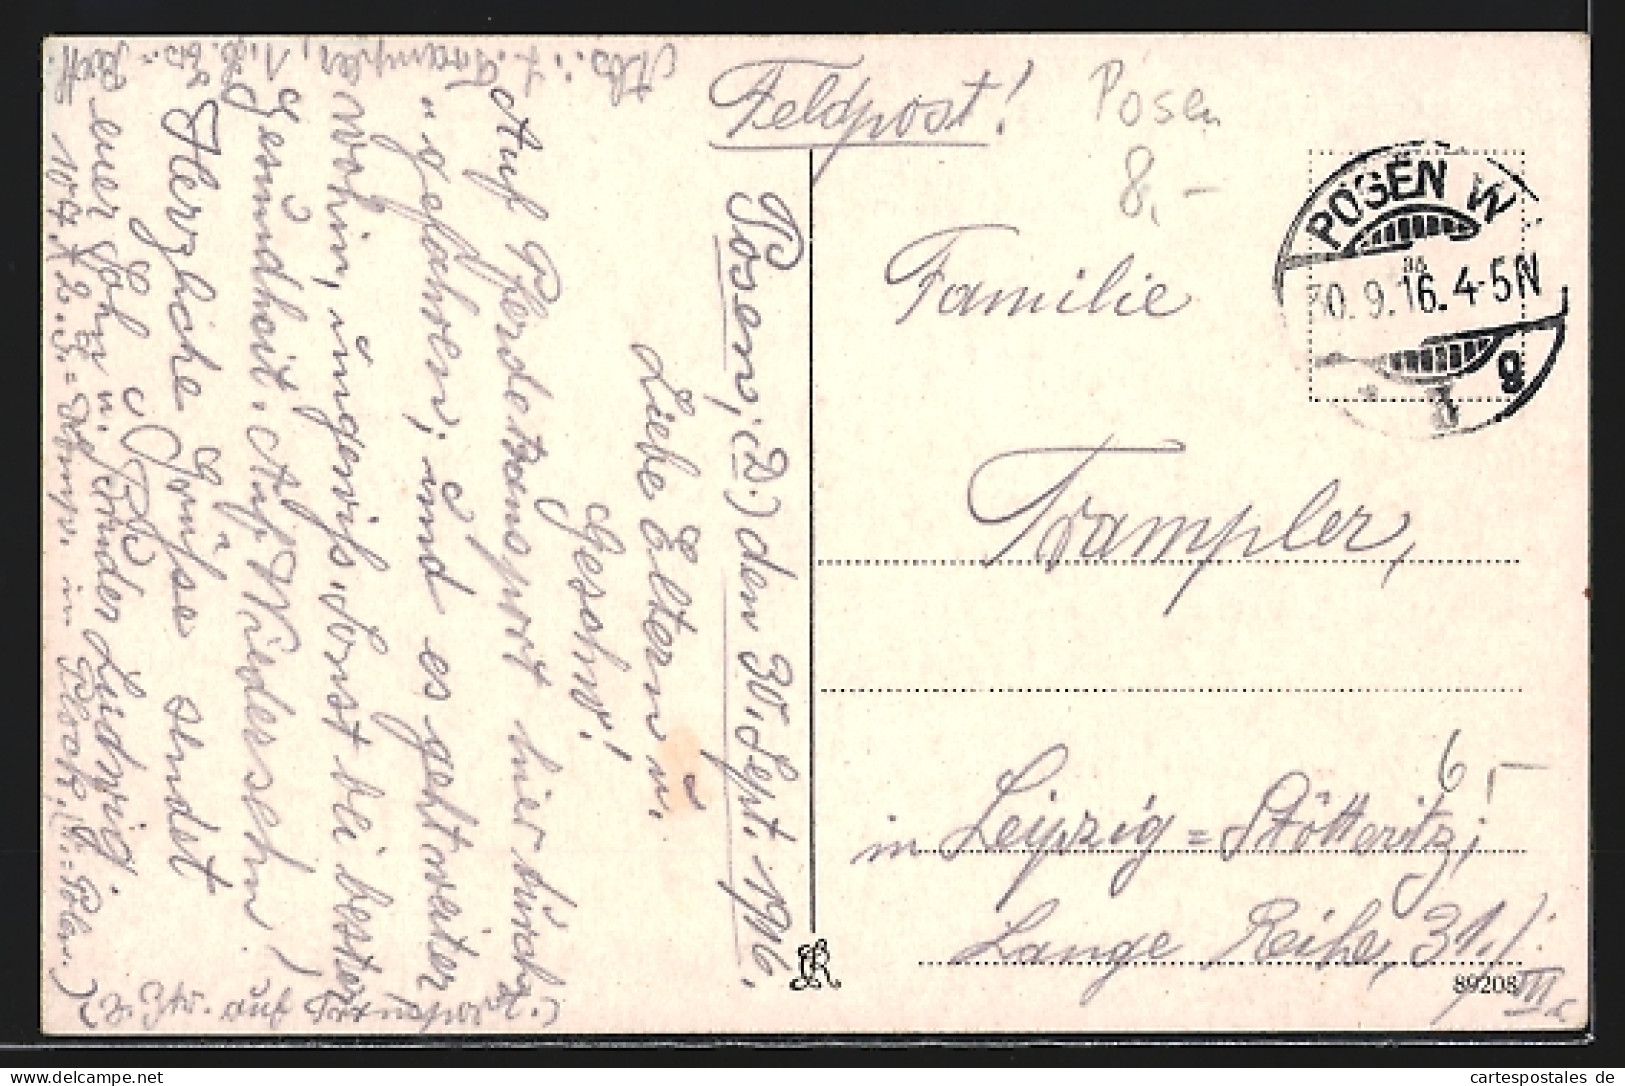 Feldpost!
Posen
8,-
POSEN W
30.9.16.4-5N
g
Familie
Trampler,
6,-
in Leipzig=Stötteritz;
Lange Reihe, 31./
III.
89208
Posen, (D.) den 30. Sept. 1916.
Liebe Eltern u.
Geschw!
Auf Pferdetransport hier durch-
"gefahren; und es geht weiter
wohin, ungewiß. Sonst bei bester
Gesundheit. Auf Wiedersehn!
Herzliche Grüße sendet
euer Sohn u. Bruder Ludwig.
Abs.: L. Trampler,
(z. Zt. auf Transport.)